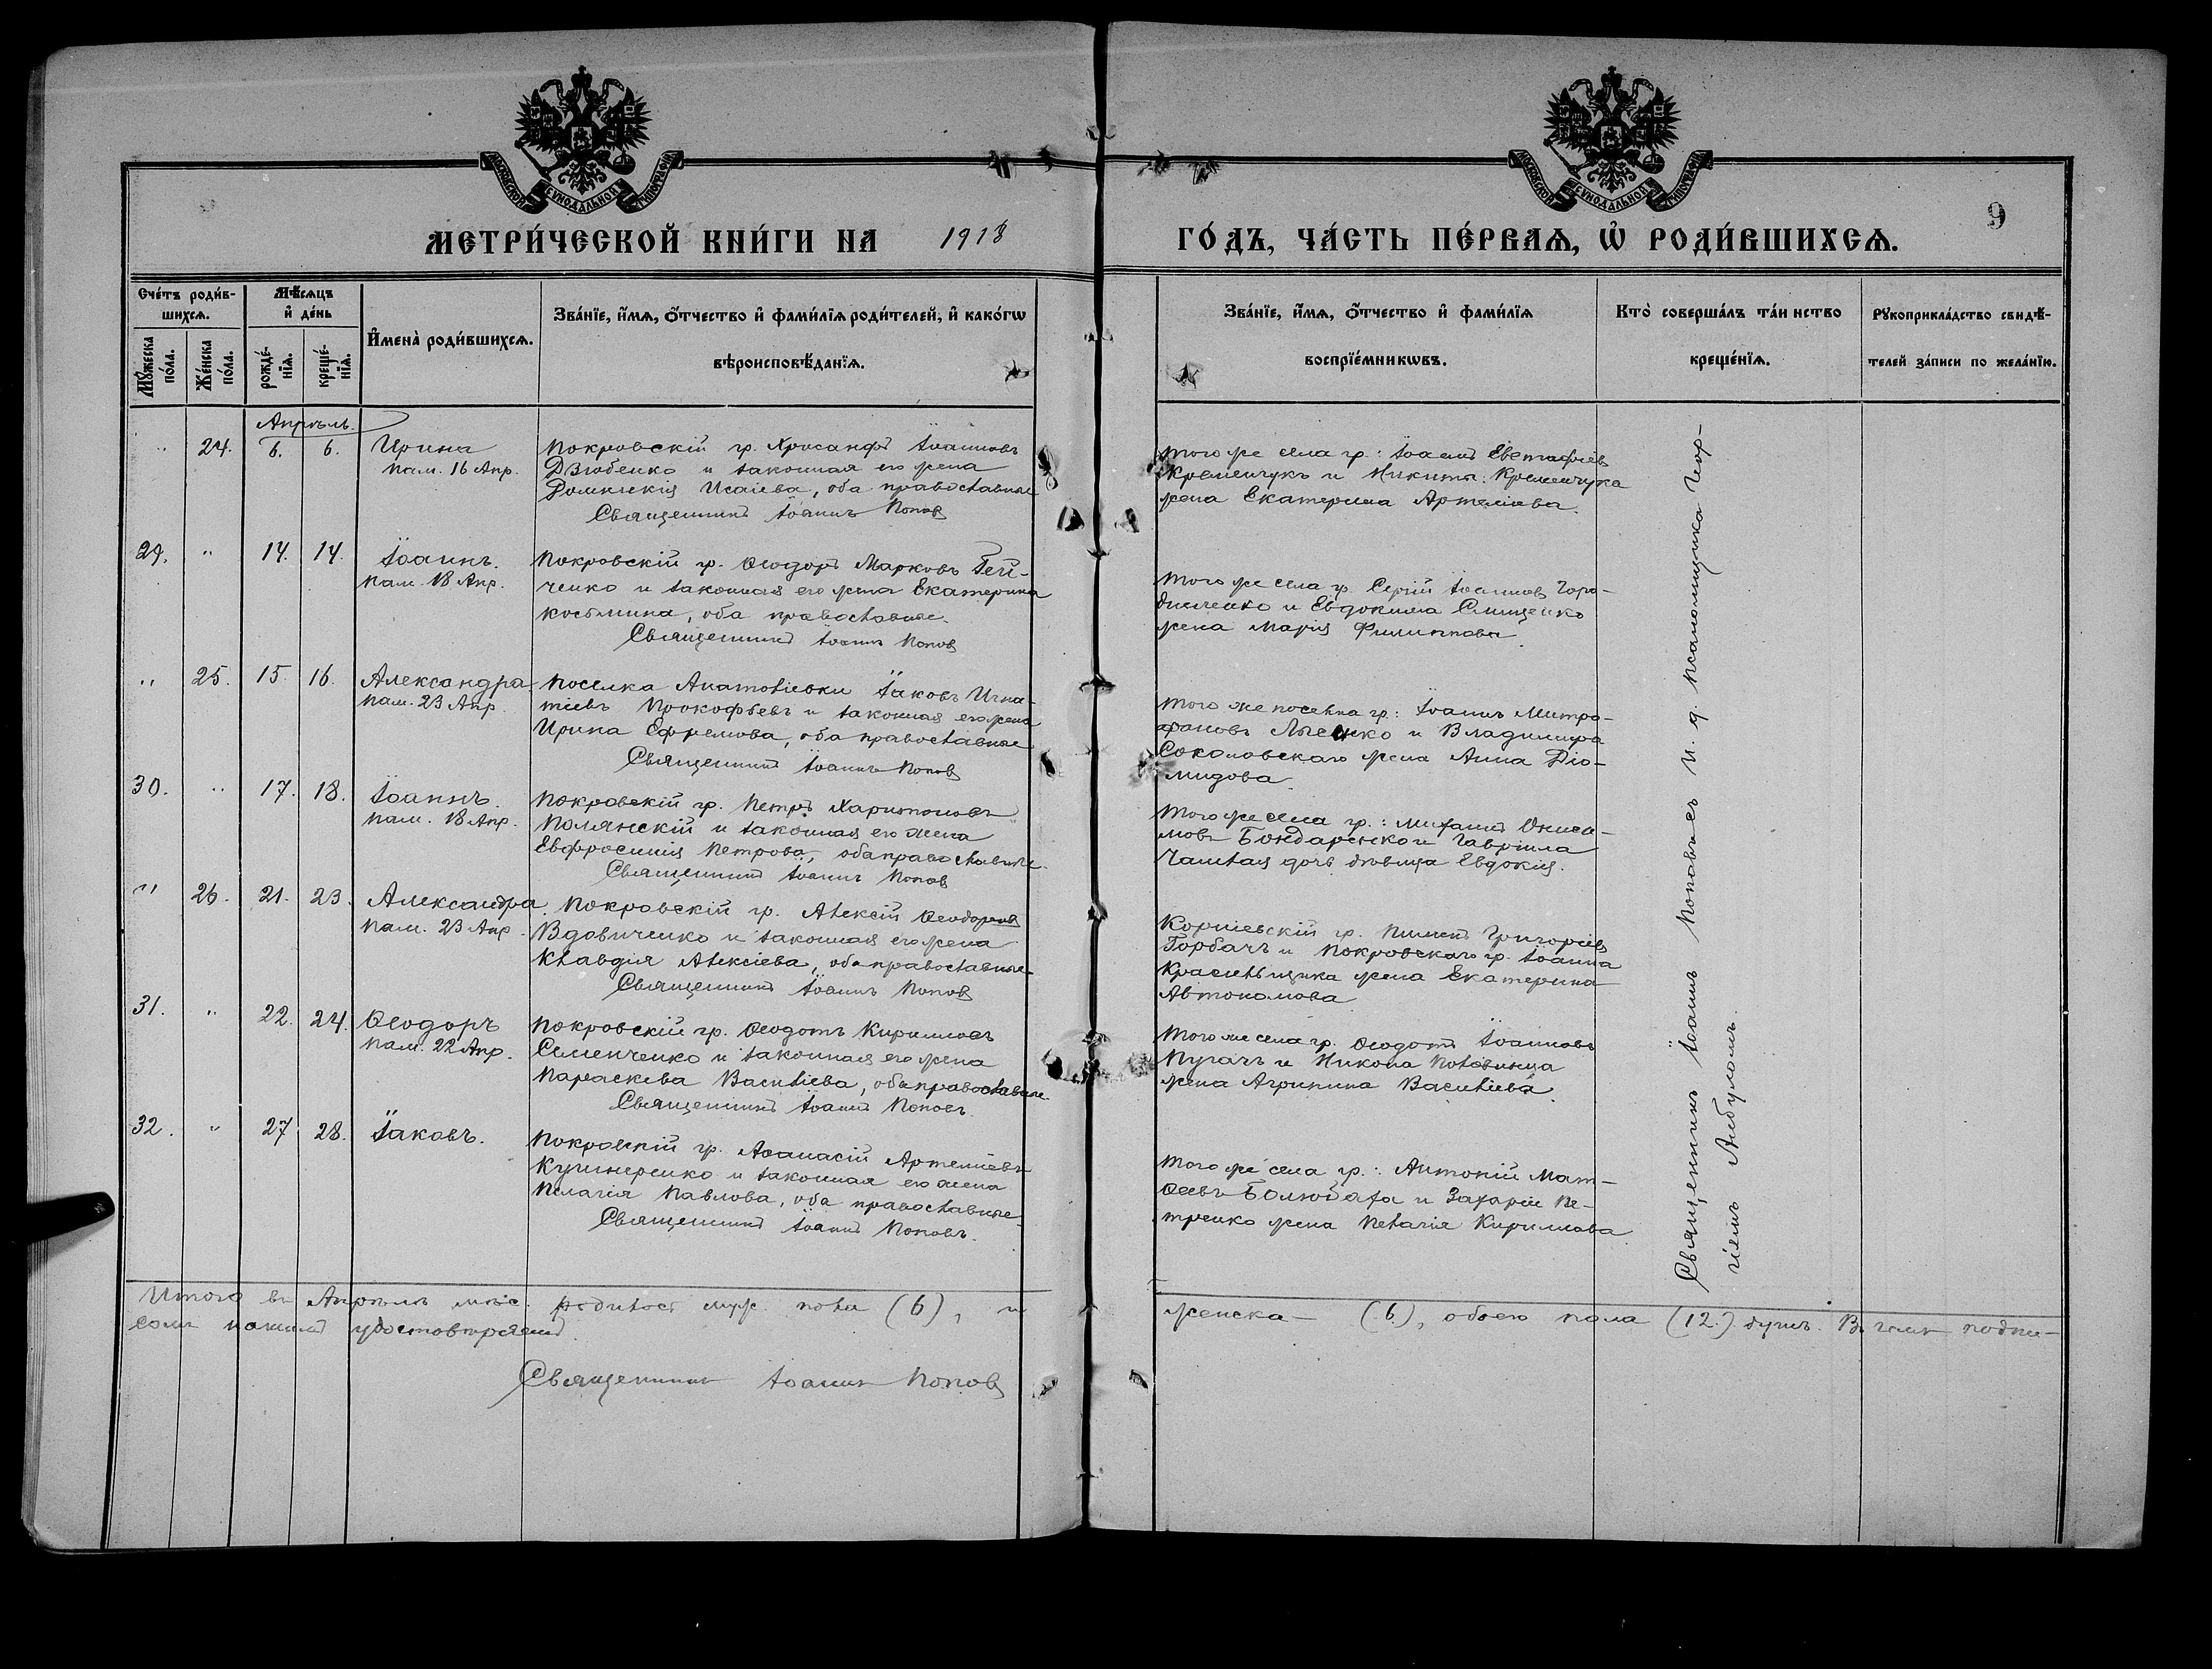 МОСКОВСКОЙ СУНОДАЛЬНОЙ ТИПОГРАФІИ
МОСКОВСКОЙ СУНОДАЛЬНОЙ ТИПОГРАФІИ
9
МЕТРИ́ЧЕСКОЙ КНИ́ГИ НА 1918
ГО́ДЪ, ЧА́СТЬ ПЕ́РВАѦ, Ѡ҆ РОДИ́ВШИХСѦ.
Сче́тъ роди́в-
шихсѧ.
Мѣ́сѧцъ
и҆ де́нь
И҆мена̀ роди́вшихсѧ.
Зва́нїе, и҆́мѧ, ѻ҆́тчество и҆ фами́лїѧ роди́телей, и҆ како́гѡ
вѣроисповѣ́данїѧ.
Мꙋ́жеска
по́ла.
Же́нска
по́ла.
рожде́-
нїѧ.
креще́-
нїѧ.
Зва́нїе, и҆́мѧ, ѻ҆́тчество и҆ фами́лїѧ
воспрїе́мникѡвъ.
Кто̀ соверша́лъ та́инство
креще́нїѧ.
Рꙋкоприкла́дство свидѣ́-
телей за́писи по жела́нїю.
Апрѣль.
" 24. 6. 6. Ирина
пам. 16 Апр.
Покровскій гр. Хрисанфъ Іоанновъ
Дзюбенко и законная его жена
Домникія Исаіева, оба православные
Священникъ Іоаннъ Поповъ
того же села гр: Іоаннъ Евстафіевъ
Кременчукъ и Никиты Кременчука
жена Екатерина Артеміева.
29. " 14. 14. Іоаннъ.
пам. 18 Апр.
Покровскій гр. Ѳеодоръ Марковъ Гей-
ченко и законная его жена Екатерина
Косьмина, оба православные.
Священникъ Іоаннъ Поповъ
того же села гр Сергій Іоанновъ Горо-
дниченко и Евдокима Слищенко
жена Марія Филиппова.
" 25. 15. 16. Александра
пам. 23 Апр.
поселка Анатоліевки Іаковъ Игна-
тіевъ Прокофьевъ и законная его жена
Ирина Ефремова, оба православные
Священникъ Іоаннъ Поповъ
того же поселка гр: Іоаннъ Митро-
фановъ Лысенко и Владимира
Соколовскаго жена Анна Діо-
мидова.
30. " 17. 18. Іоаннъ.
пам. 18 Апр.
Покровскій гр. Петръ Харитоновъ
Полянскій и законная его жена
Евфросинія Петрова, оба православные.
Священникъ Іоаннъ Поповъ
того же села гр: Михаилъ Ониси-
мовъ Бондаренко и Гавріила
дочь дѣвица Евдокія.
" 26. 21. 23. Александра.
пам. 23 Апр.
Покровскій гр. Алексій Ѳеодоровъ
Вдовиченко и законная его жена
Клавдія Алексіева, оба православные
Священникъ Іоаннъ Поповъ
Корніевскій гр. Пименъ Григоріевъ
Горбачъ и Покровскаго гр. Іоанна
Красильщика жена Екатерина
Автономова.
31. " 22. 24. Ѳеодоръ
пам. 22 Апр.
Покровскій гр. Ѳеодотъ Кирилловъ
Семенченко и законная его жена
Параскева Василіева, оба православные
Священникъ Іоаннъ Поповъ.
того же села гр. Ѳеодотъ Іоанновъ
Пугачъ и Никона Половинца
жена Агрипина Василіева.
32. " 27 28. Іаковъ.
Покровскій гр. Аѳанасій Артеміевъ
Кушнеренко и законная его жена
Пелагія Павлова, оба православные
Священникъ Іоаннъ Поповъ.
того же села гр.: Антоній Мат-
ѳеевъ и Захаріи Пе-
тренко жена Пелагія Кириллова
Священникъ Іоаннъ Поповъ съ и. д. псаломщика Геор-
гіемъ Анбуломъ.
Итого въ Апрѣлѣ мѣс. родилось муж. пола (6), и
женска— (6), обоего пола (12.) душъ. Въ чемъ подпи-
сомъ нашимъ удостовѣряемъ.
Священникъ Іоаннъ Поповъ